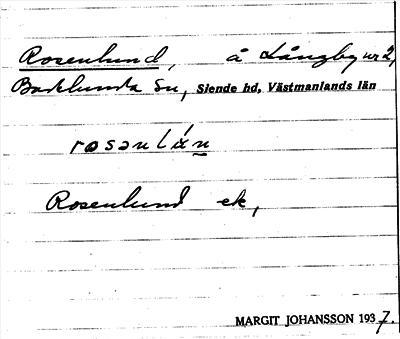 Rosenlund, å Långby nr 2,
Badelunda sn, Siende hd, Västmanlands län
rosənlán
Rosenlund ek,
MARGIT JOHANSSON 1937.